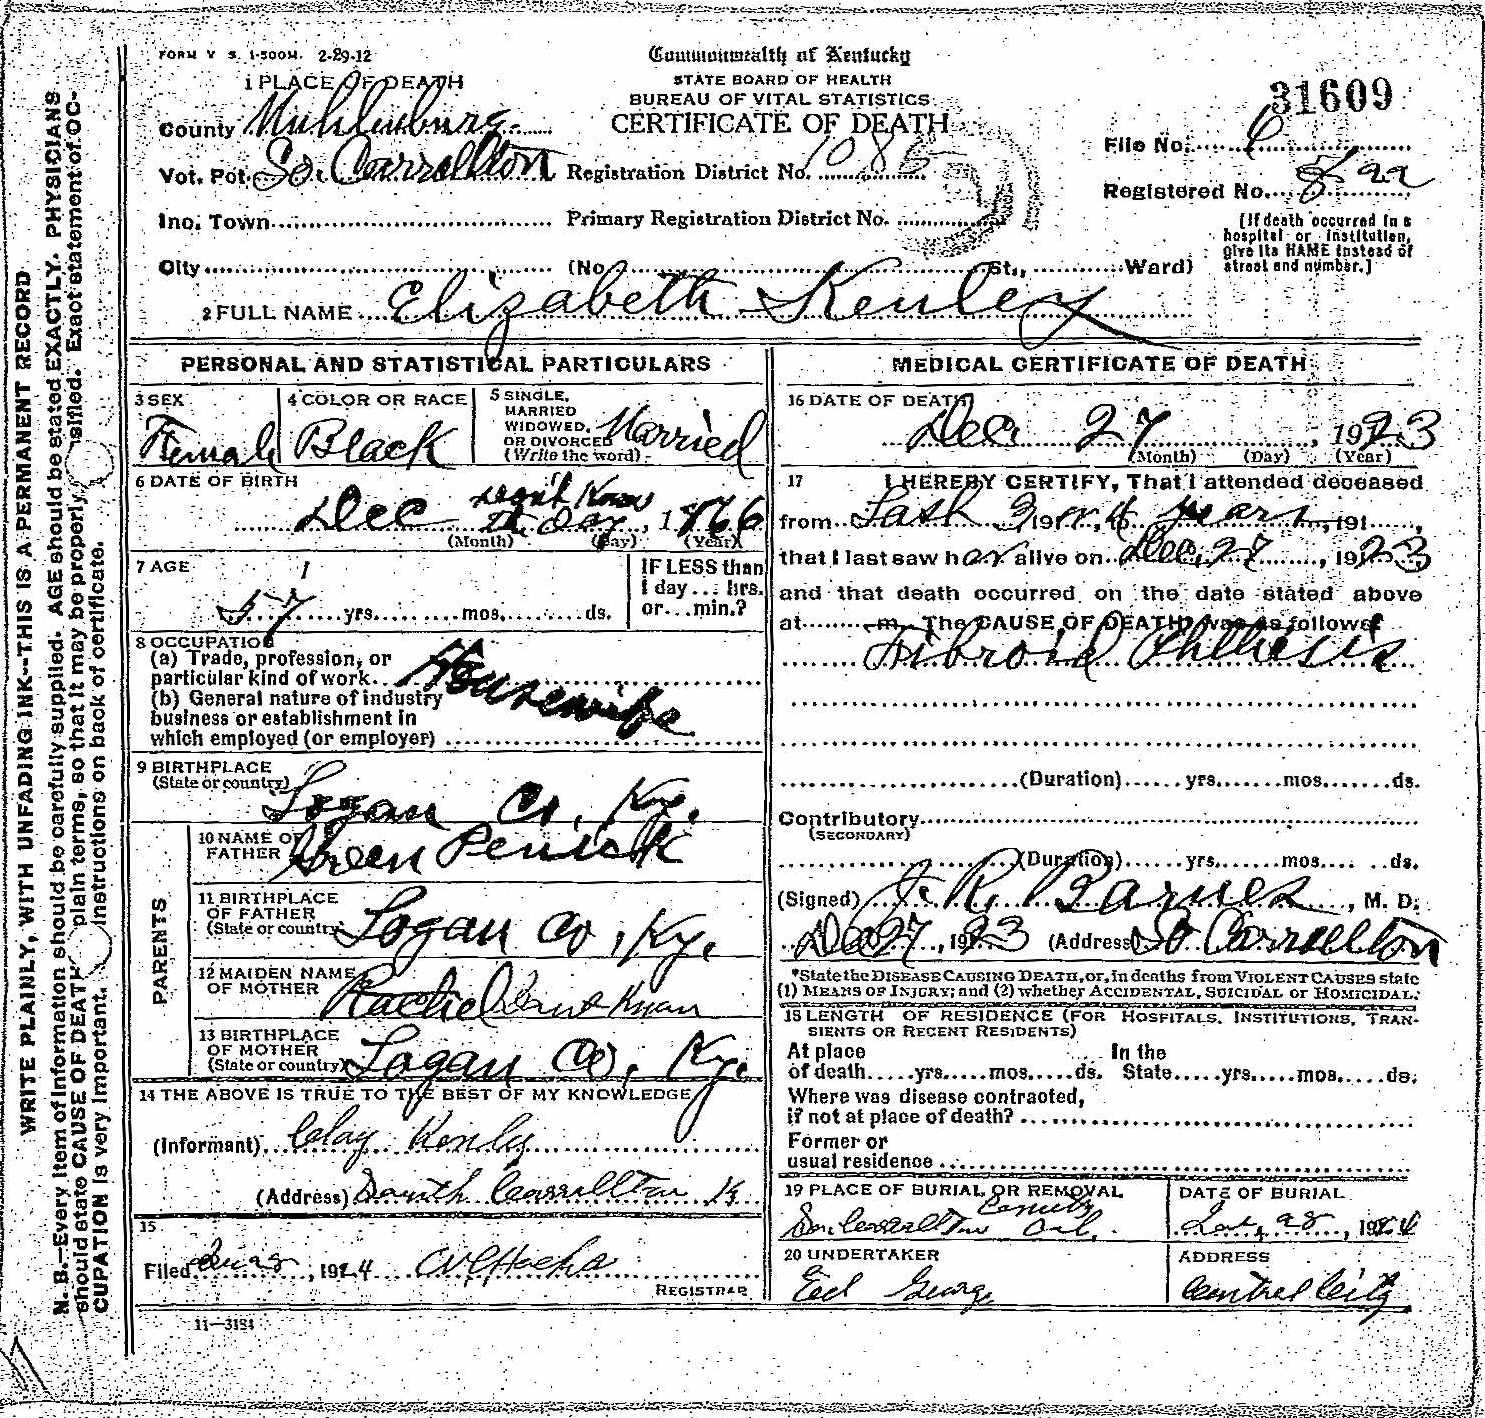 FORM V. S. 1-500M. 2-29-12
Commonwealth of Kentucky
STATE BOARD OF HEALTH
BUREAU OF VITAL STATISTICS
CERTIFICATE OF DEATH
31609
1 PLACE OF DEATH
County Muhlenburg
Vot. Pct. So. Carrollton Registration District No. 1085
File No.
Registered No.
Inc. Town Primary Registration District No.
City (No. St., Ward)
(If death occurred in a
hospital or institution,
give its NAME instead of
street and number.]
2 FULL NAME Elizabeth Kenley
PERSONAL AND STATISTICAL PARTICULARS
3 SEX
Female
4 COLOR OR RACE
Black
5 SINGLE,
MARRIED
WIDOWED,
OR DIVORCED
(Write the word)
Married
6 DATE OF BIRTH
Dec Don't Know the Day, 1866
(Month) (Day) (Year)
7 AGE
57 yrs. mos. ds.
IF LESS than
1 day... hrs.
or... min.?
8 OCCUPATION
(a) Trade, profession, or
particular kind of work
(b) General nature of industry
business or establishment in
which employed (or employer)
Housewife
9 BIRTHPLACE
(State or country)
Logan Co, Ky.
PARENTS
10 NAME OF
FATHER
Green Penick
11 BIRTHPLACE
OF FATHER
(State or country)
Logan Co, Ky.
12 MAIDEN NAME
OF MOTHER
Rachel Dont Know
13 BIRTHPLACE
OF MOTHER
(State or country)
Logan Co, Ky.
14 THE ABOVE IS TRUE TO THE BEST OF MY KNOWLEDGE
(Informant) Clay Kenley
(Address) South Carrollton K
15
Filed , 1924
REGISTRAR
11—3184
MEDICAL CERTIFICATE OF DEATH
16 DATE OF DEATH
Dec. 27, 1923
(Month) (Day) (Year)
17 I HEREBY CERTIFY, That I attended deceased
from Last 3 or 4 years, 191
that I last saw her alive on Dec, 27, 1923
and that death occurred on the date stated above
at m. The CAUSE OF DEATH was as follows
Fibroid Phthisis
(Duration) yrs. mos. ds.
Contributory
(SECONDARY)
(Duration) yrs. mos. ds.
(Signed) J. R. Barnes, M. D.
Dec 27, 1923 (Address) So Carrollton
*State the DISEASE CAUSING DEATH, or, in deaths from VIOLENT CAUSES state
(1) MEANS OF INJURY; and (2) whether ACCIDENTAL, SUICIDAL or HOMICIDAL.
18 LENGTH OF RESIDENCE (FOR HOSPITALS, INSTITUTIONS, TRAN-
SIENTS OR RECENT RESIDENTS)
At place In the
of death yrs. mos. ds. State yrs. mos. ds.
Where was disease contracted,
if not at place of death?
Former or
usual residence
19 PLACE OF BURIAL OR REMOVAL
DATE OF BURIAL
20 UNDERTAKER
Ed George
ADDRESS
Central City
WRITE PLAINLY, WITH UNFADING INK--THIS IS A PERMANENT RECORD
N. B.—Every item of information should be carefully supplied. AGE should be stated EXACTLY. PHYSICIANS
should state CAUSE OF DEATH plain terms, so that it may be properly sified. Exact statement of OC-
CUPATION is very important. Instructions on back of certificate.